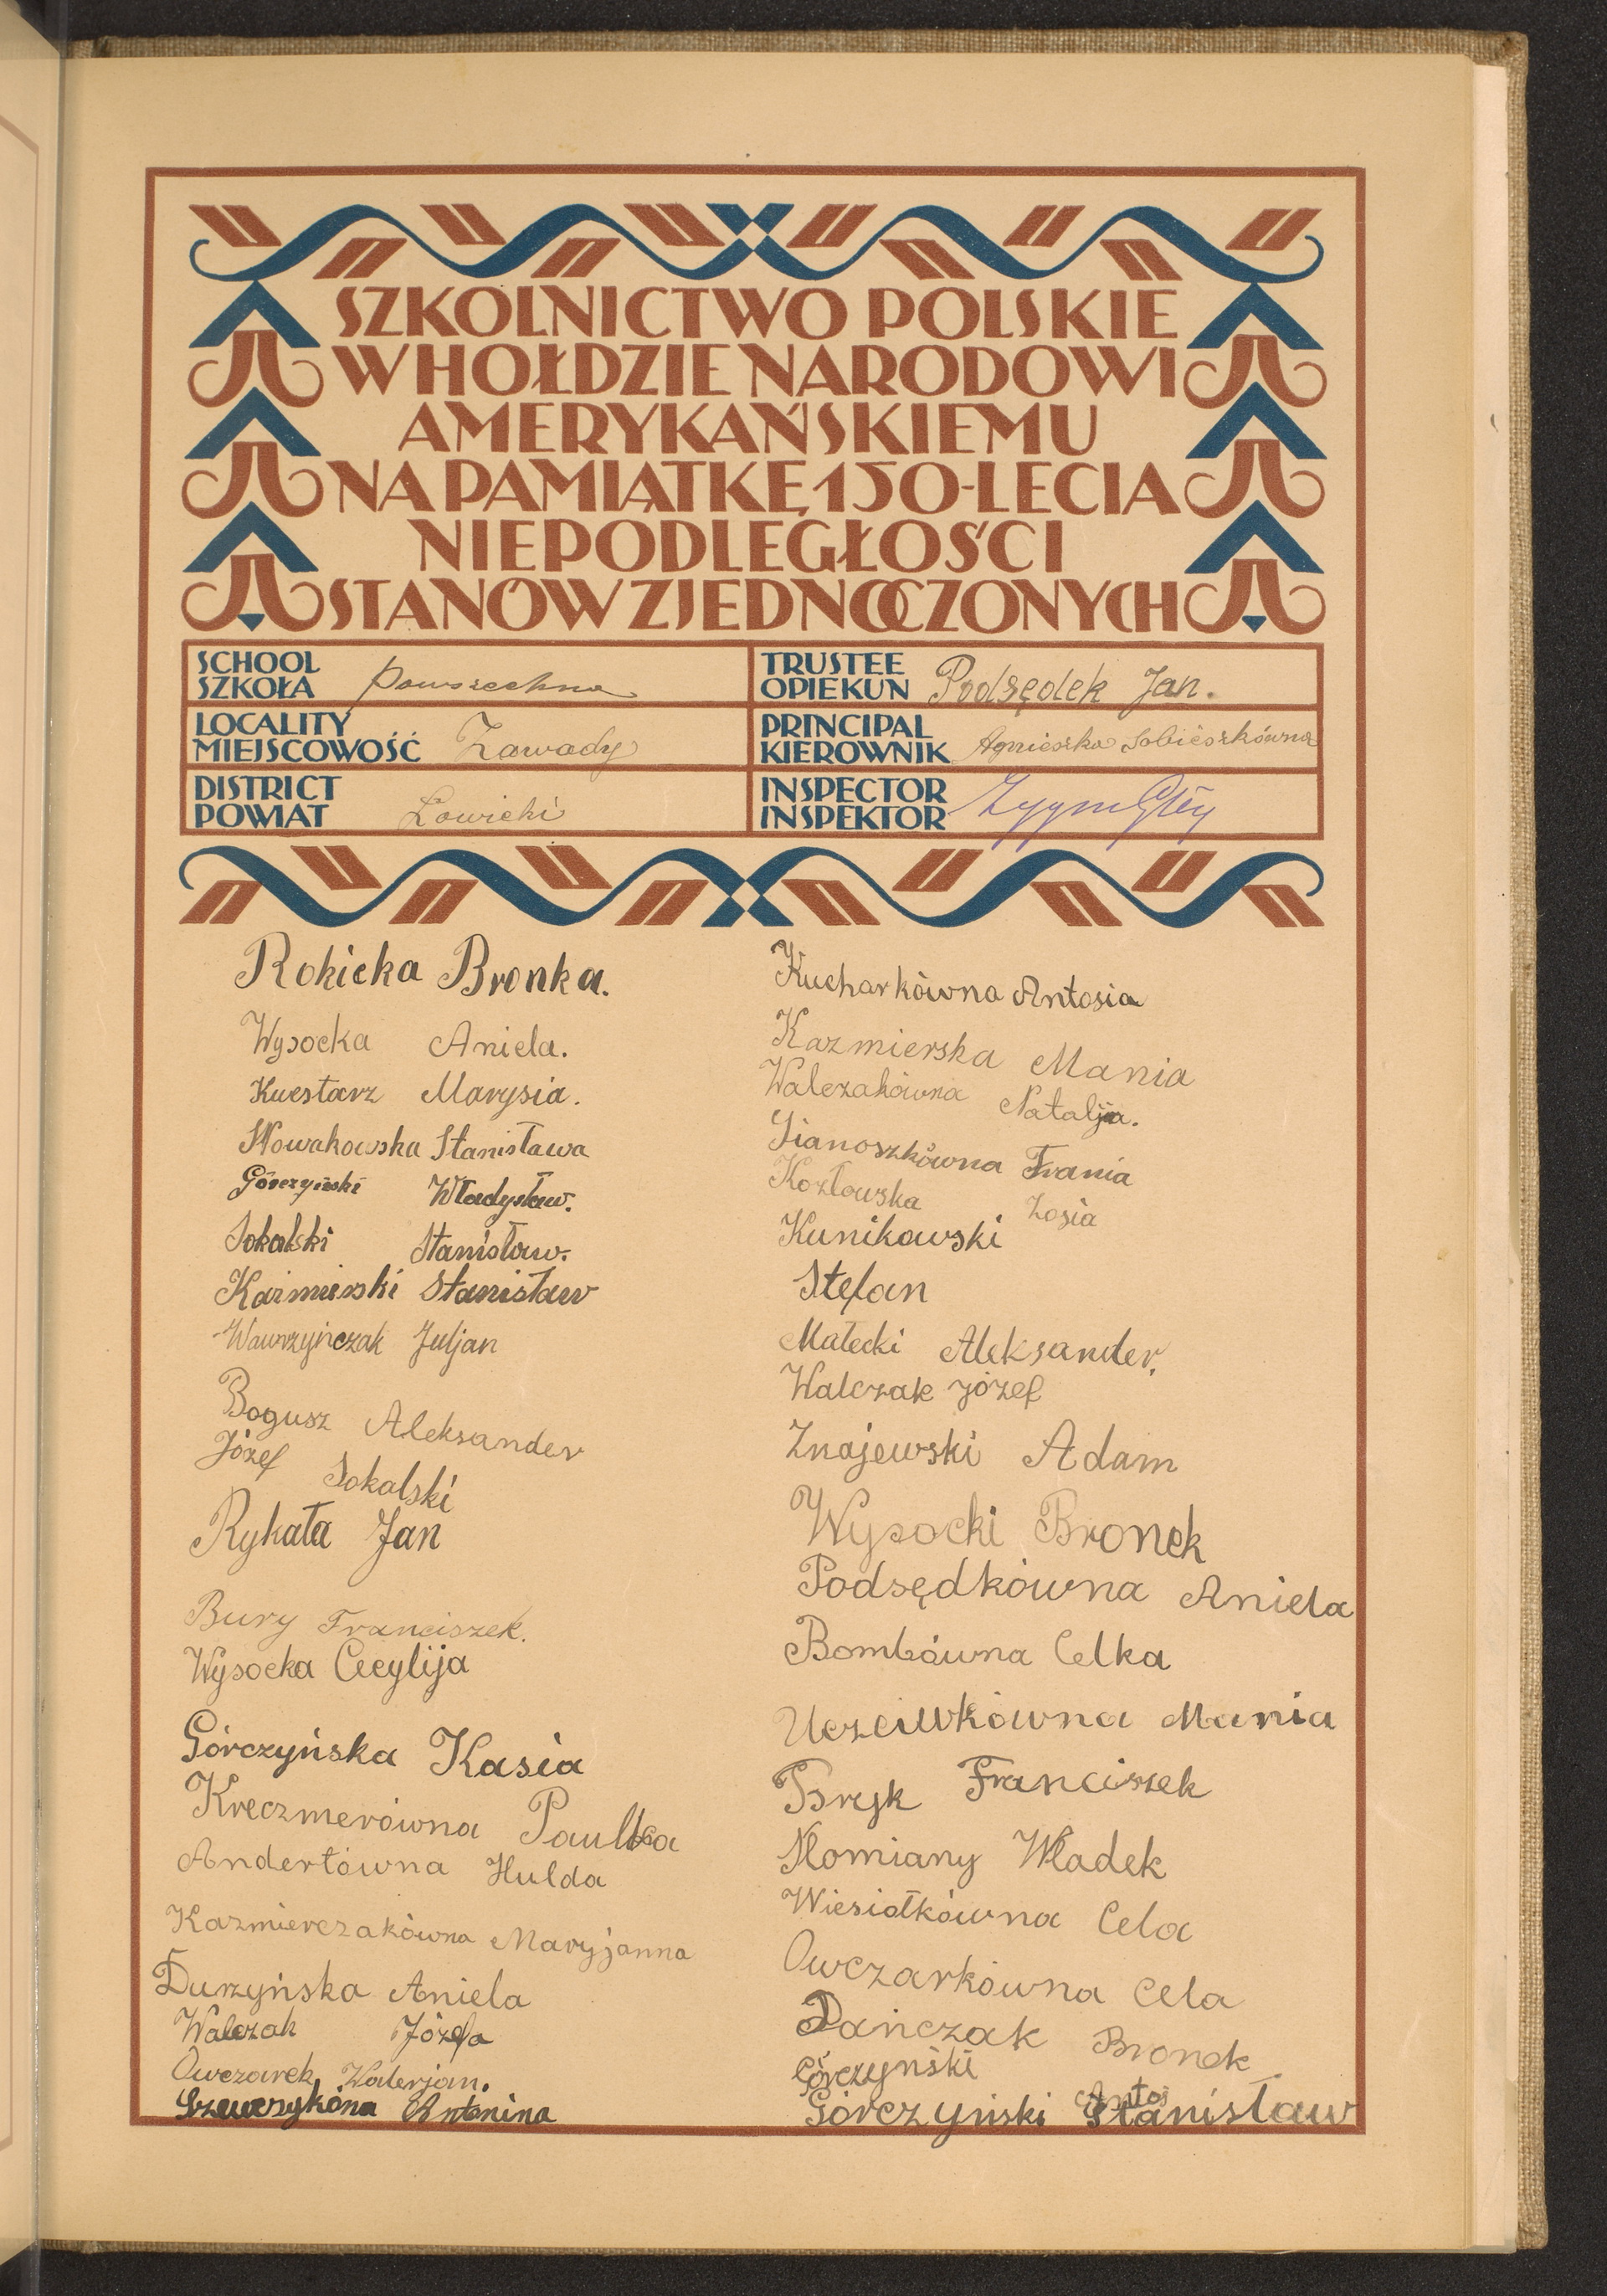 SZKOLNICTWO POLSKIE
W HOŁDZIE NARODOWI
AMERYKAŃSKIEMU
NA PAMIĄTKĘ 150-LECIA
NIEPODLEGŁOŚCI
STANÓW ZJEDNOCZONYCH
SCHOOL
SZKOŁA Powszechna
LOCALITY
MIEJSCOWOŚĆ Zawady
DISTRICT
POWIAT Łowicki
TRUSTEE
OPIEKUN Podsędek Jan.
PRINCIPAL
KIEROWNIK Agnieszka Sobieszkówna
INSPECTOR
INSPEKTOR
Rokicka Bronka.
Wysocka Aniela.
Kwestarz Marysia.
Nowakowska Stanisława
Górczyński Władysław.
Sokalski Stanisław.
Kaźmierski Stanisław
Wawrzyńczak Juljan
Bogusz Aleksander
Józef Sokalski
Rykała Jan
Bury Franciszek.
Wysocka Cecylija
Górczyńska Kasia
Kreczmerówna Paulka
Andertówna Hulda
Kazmierczakówna Maryjanna
Durzyńska Aniela
Walczak Józefa
Owczarek Walerjan.
Szewczykóna Antonina
Kucharkówna Antosia
Kazmierska Mania
Walczakówna Natalja.
Sianoszkówna Frania
Kozłowska Zosia
Kunikowski
Stefan
Małecki Aleksander.
Walczak Józef
Znajewski Adam
Wysocki Bronek
Podsędkówna Aniela
Bombówna Celka
Uczciwkówna Mania
Bryk Franciszek
Słomiany Władek
Wiesiołkówna Cela
Owczarkówna Cela
Dańczak Bronek
Górczyński Antoś
Górczyński Stanisław